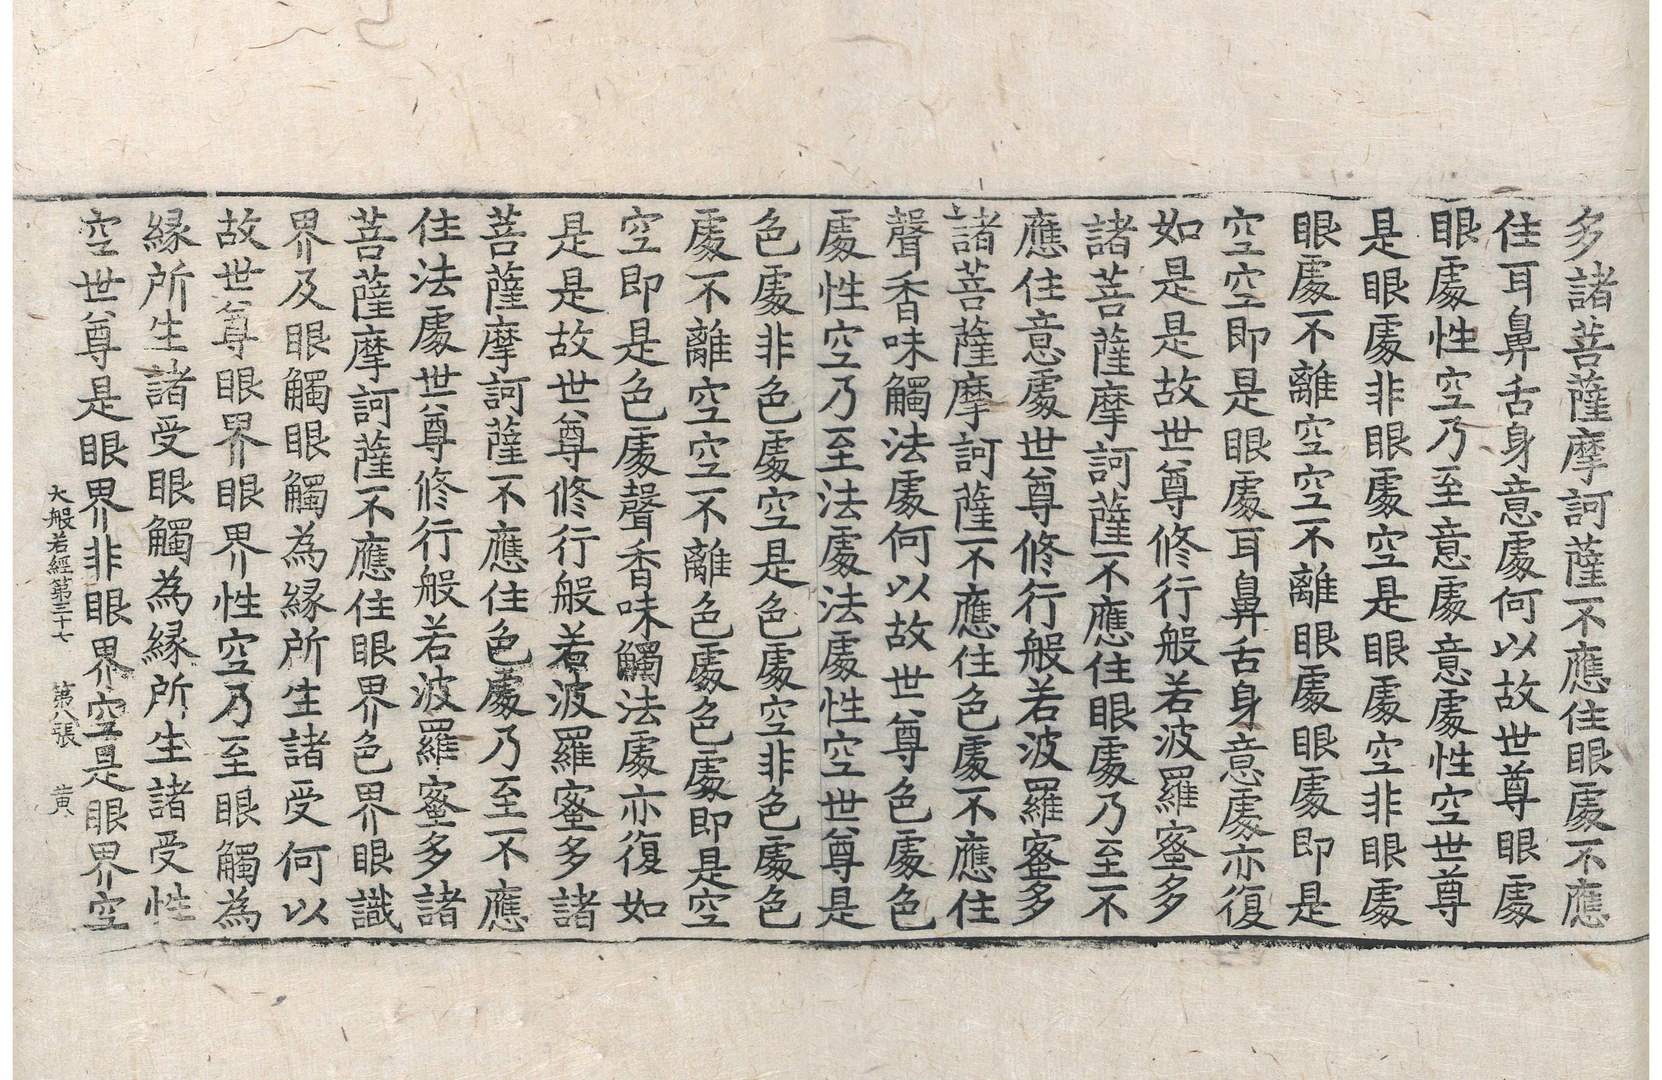 多諸菩薩摩訶薩不應住眼處不應
住耳鼻舌身意處何以故世尊眼處
眼處性空乃至意處意處性空世尊
是眼處非眼處空是眼處空非眼處
眼處不離空空不離眼處眼處即是
空空即是眼處耳鼻舌身意處亦復
如是是故世尊修行般若波羅蜜多
諸菩薩摩訶薩不應住眼處乃至不
應住意處世尊修行般若波羅蜜多
諸菩薩摩訶薩不應住色處不應住
聲香味觸法處何以故世尊色處色
處性空乃至法處法處性空世尊是
色處非色處空是色處空非色處色
處不離空空不離色處色處即是空
空即是色處聲香味觸法處亦復如
是是故世尊修行般若波羅蜜多諸
菩薩摩訶薩不應住色處乃至不應
住法處世尊修行般若波羅蜜多諸
菩薩摩訶薩不應住眼界色界眼識
界及眼觸眼觸為縁所生諸受何以
故世尊眼界眼界性空乃至眼觸為
縁所生諸受眼觸為縁所生諸受性
空世尊是眼界非眼界空是眼界空
大般若經第三十七 第八張 黃